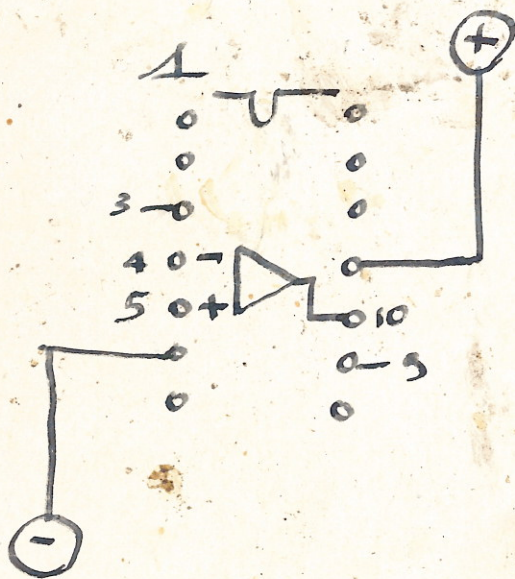 +
1
3
4 -
5 + 10
9
-